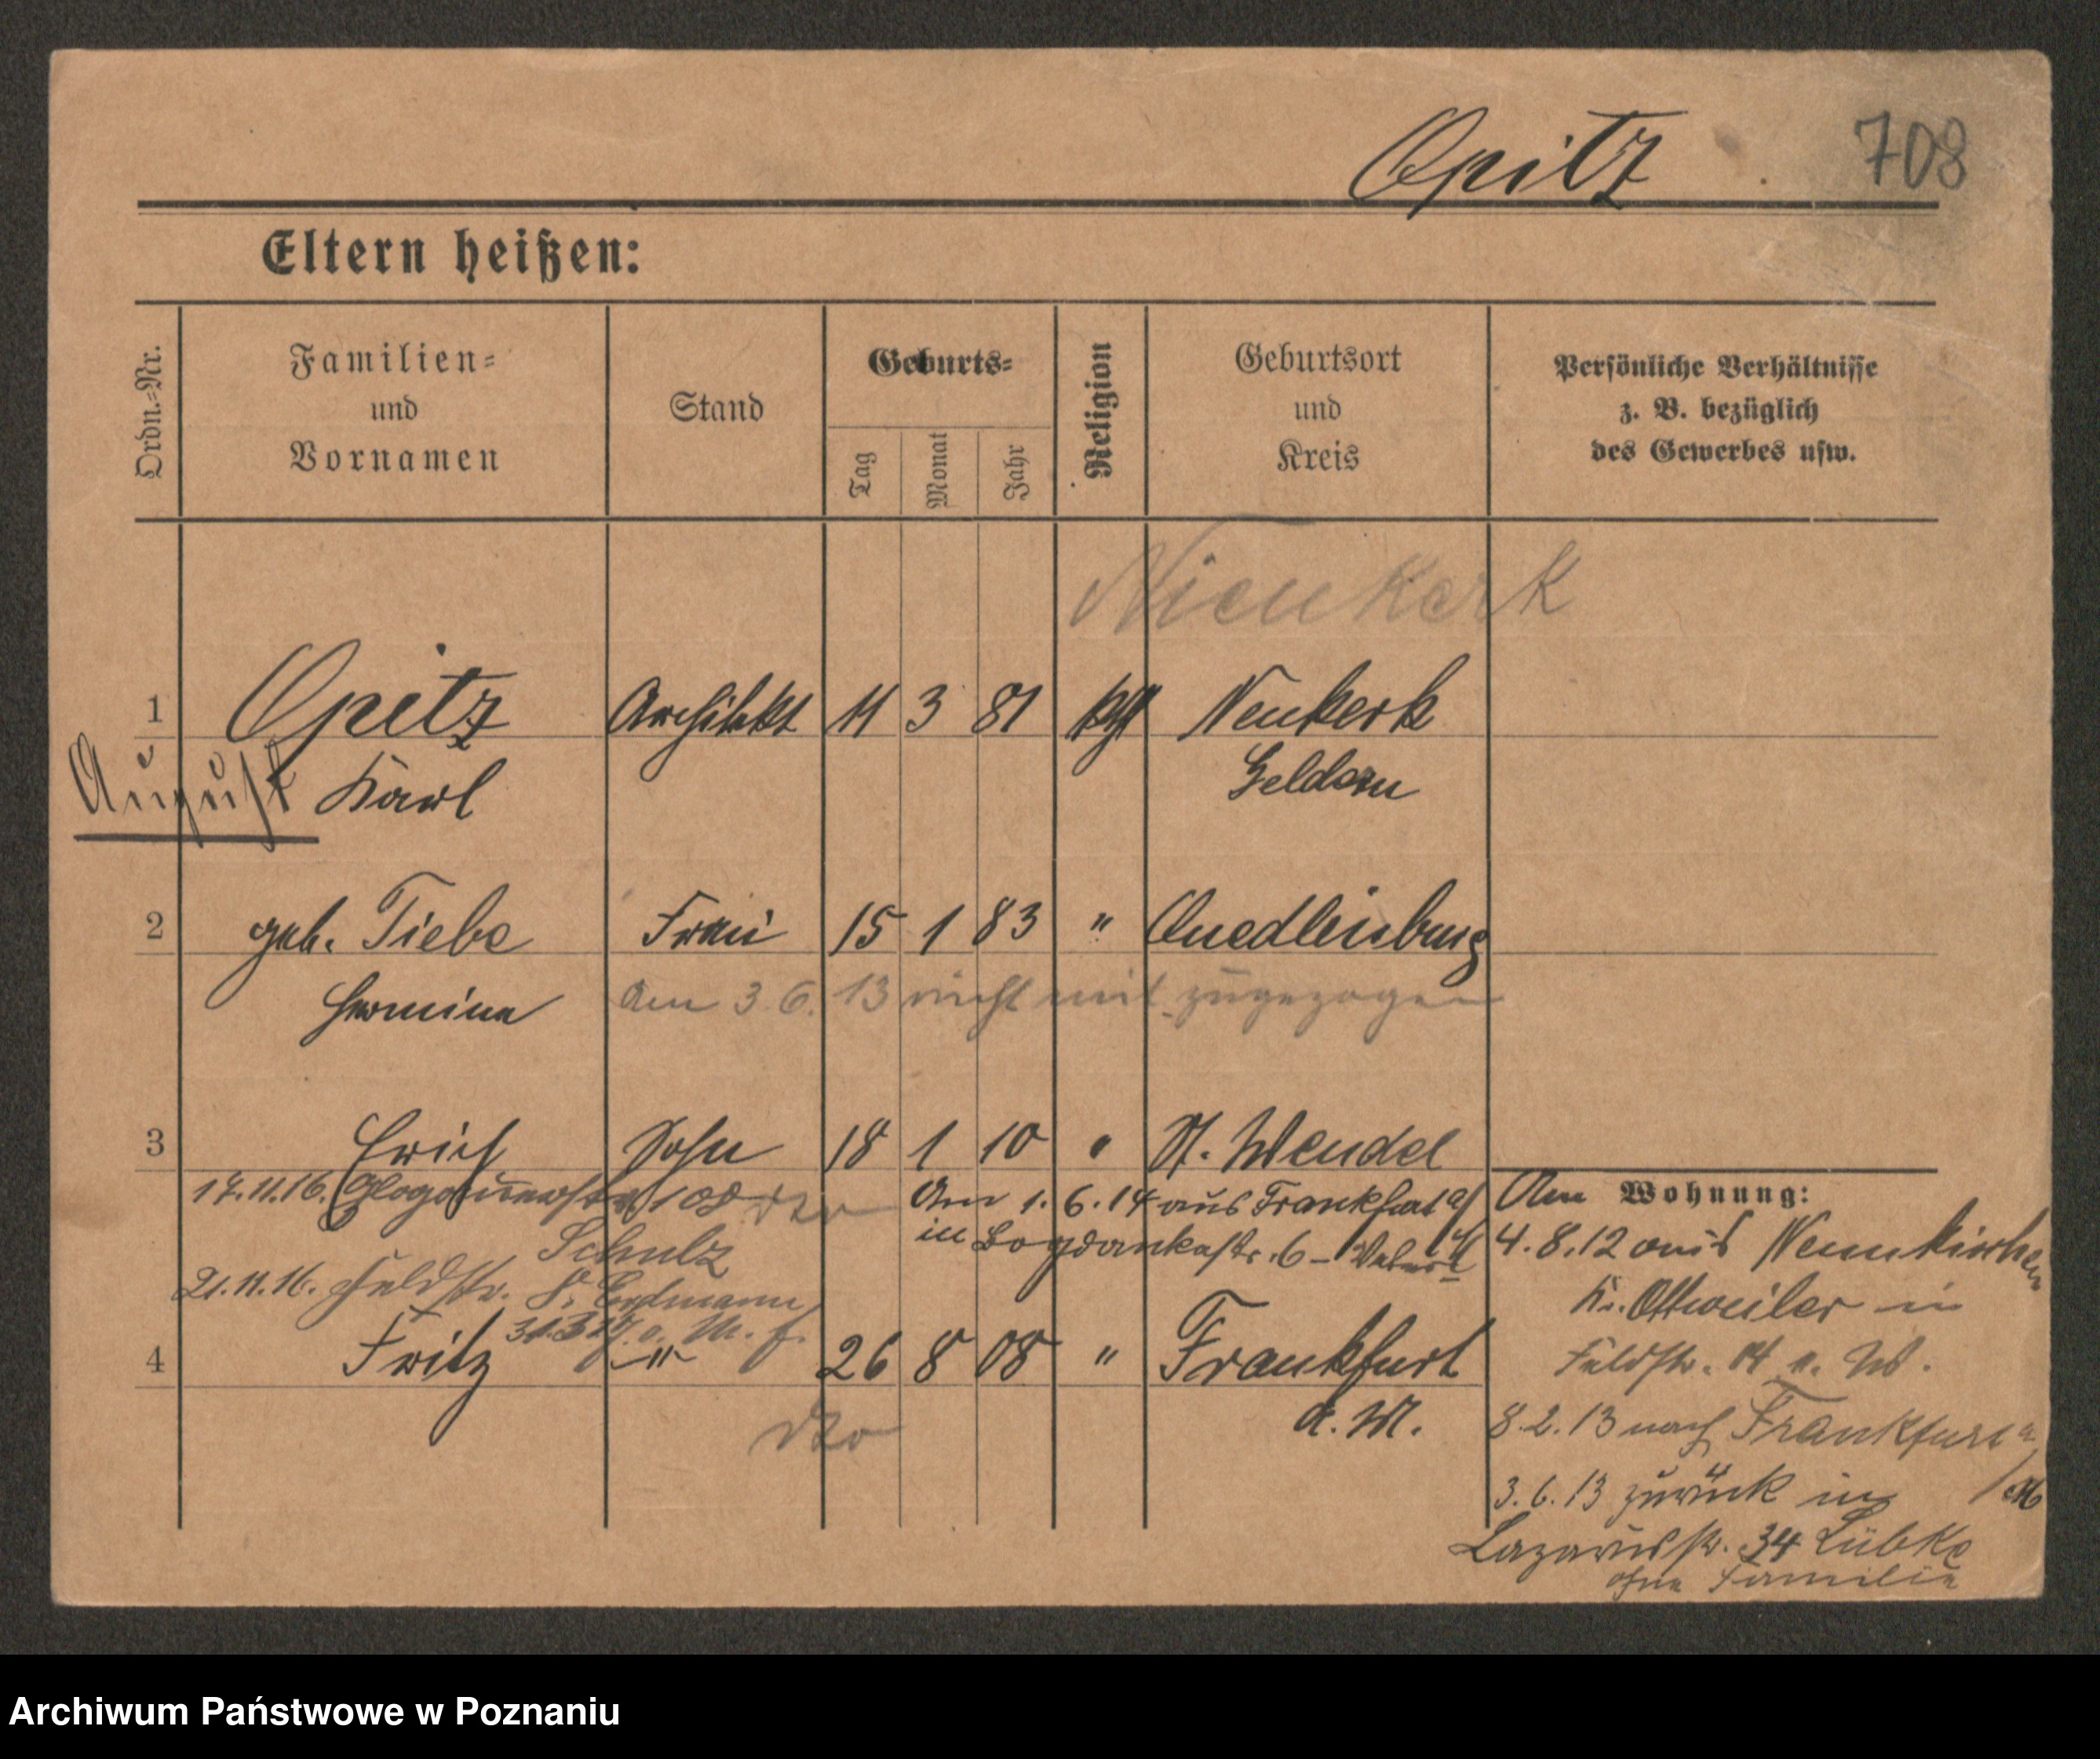 Opitz
708
Eltern heißen:
Ordn.-Nr.
Familien-
und
Vornamen
Stand
Geburts-
Tag
Monat
Jahr
Religion
Geburtsort
und
Kreis
Persönliche Verhältnisse
z. B. bezüglich
des Gewerbes usw.
Nieukerk
1 Opitz Architekt 11 3 81 Neukerk
August Karl Geldern
2 geb. Tiebe Frau 15 1 83 " Quedlinburg
Hermine Am 3.6.13 nicht mit zugezogen
3 Erich Sohn 18 1 10 " St. Wendel
17.11.16. Glogauerstr. 108 dto
Schulz
21.11.16. Feldstr. 8, Erdmann
31.3.17.
Am 1.6.14 aus Frankfurt a/
in Bogdankastr. 6 -
4 Fritz -"- 26 8 08 " Frankfurt
a. M.
dto
Am Wohnung:
4.8.12 aus Neunkirchen
Kr. Ottweiler in
Feldstr.
8.2.13 nach Frankfurt a
/M
3.6.13 zurück in
Lazarusstr. 34 Lübke
ohne Familie
Archiwum Państwowe w Poznaniu